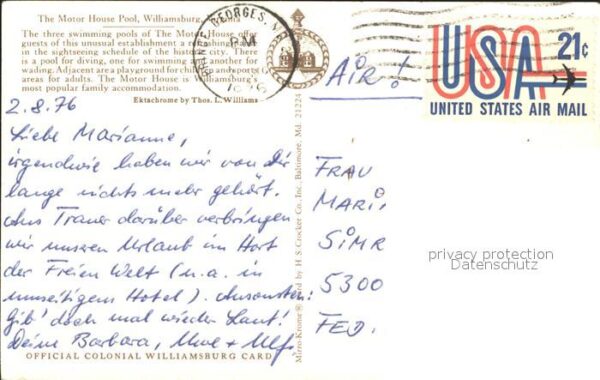 The Motor House Pool, Williamsburg,
The three swimming pools of The Motor House offer
guests of this unusual establishment a refreshing
in the sightseeing schedule of the historic city. There
is a pool for diving, one for swimming and another for
wading. Adjacent are a playground for children and
areas for adults. The Motor House is Williamsburg's
most popular family accommodation.
Ektachrome by Thos. L. Williams
PRINCE GEORGES,
PM
AIR!
USA 21c
UNITED STATES AIR MAIL
2.8.76
Liebe Marianne,
irgendwie haben wir von Dir
lange nichts mehr gehört.
Aus Trauer darüber verbringen
wir unseren Urlaub im Hort
der Freien Welt (u.a. in
umseitigem Hotel). Ansonsten:
Gib' doch mal wieder Laut!
Deine Barbara, Uwe + Ulf
OFFICIAL COLONIAL WILLIAMSBURG CARD
Mirro-Krome® Card by H. S. Crocker Co., Inc., Baltimore, Md. 21224
FRAU
MARI
SIMR
5300
FED.
privacy protection
Datenschutz